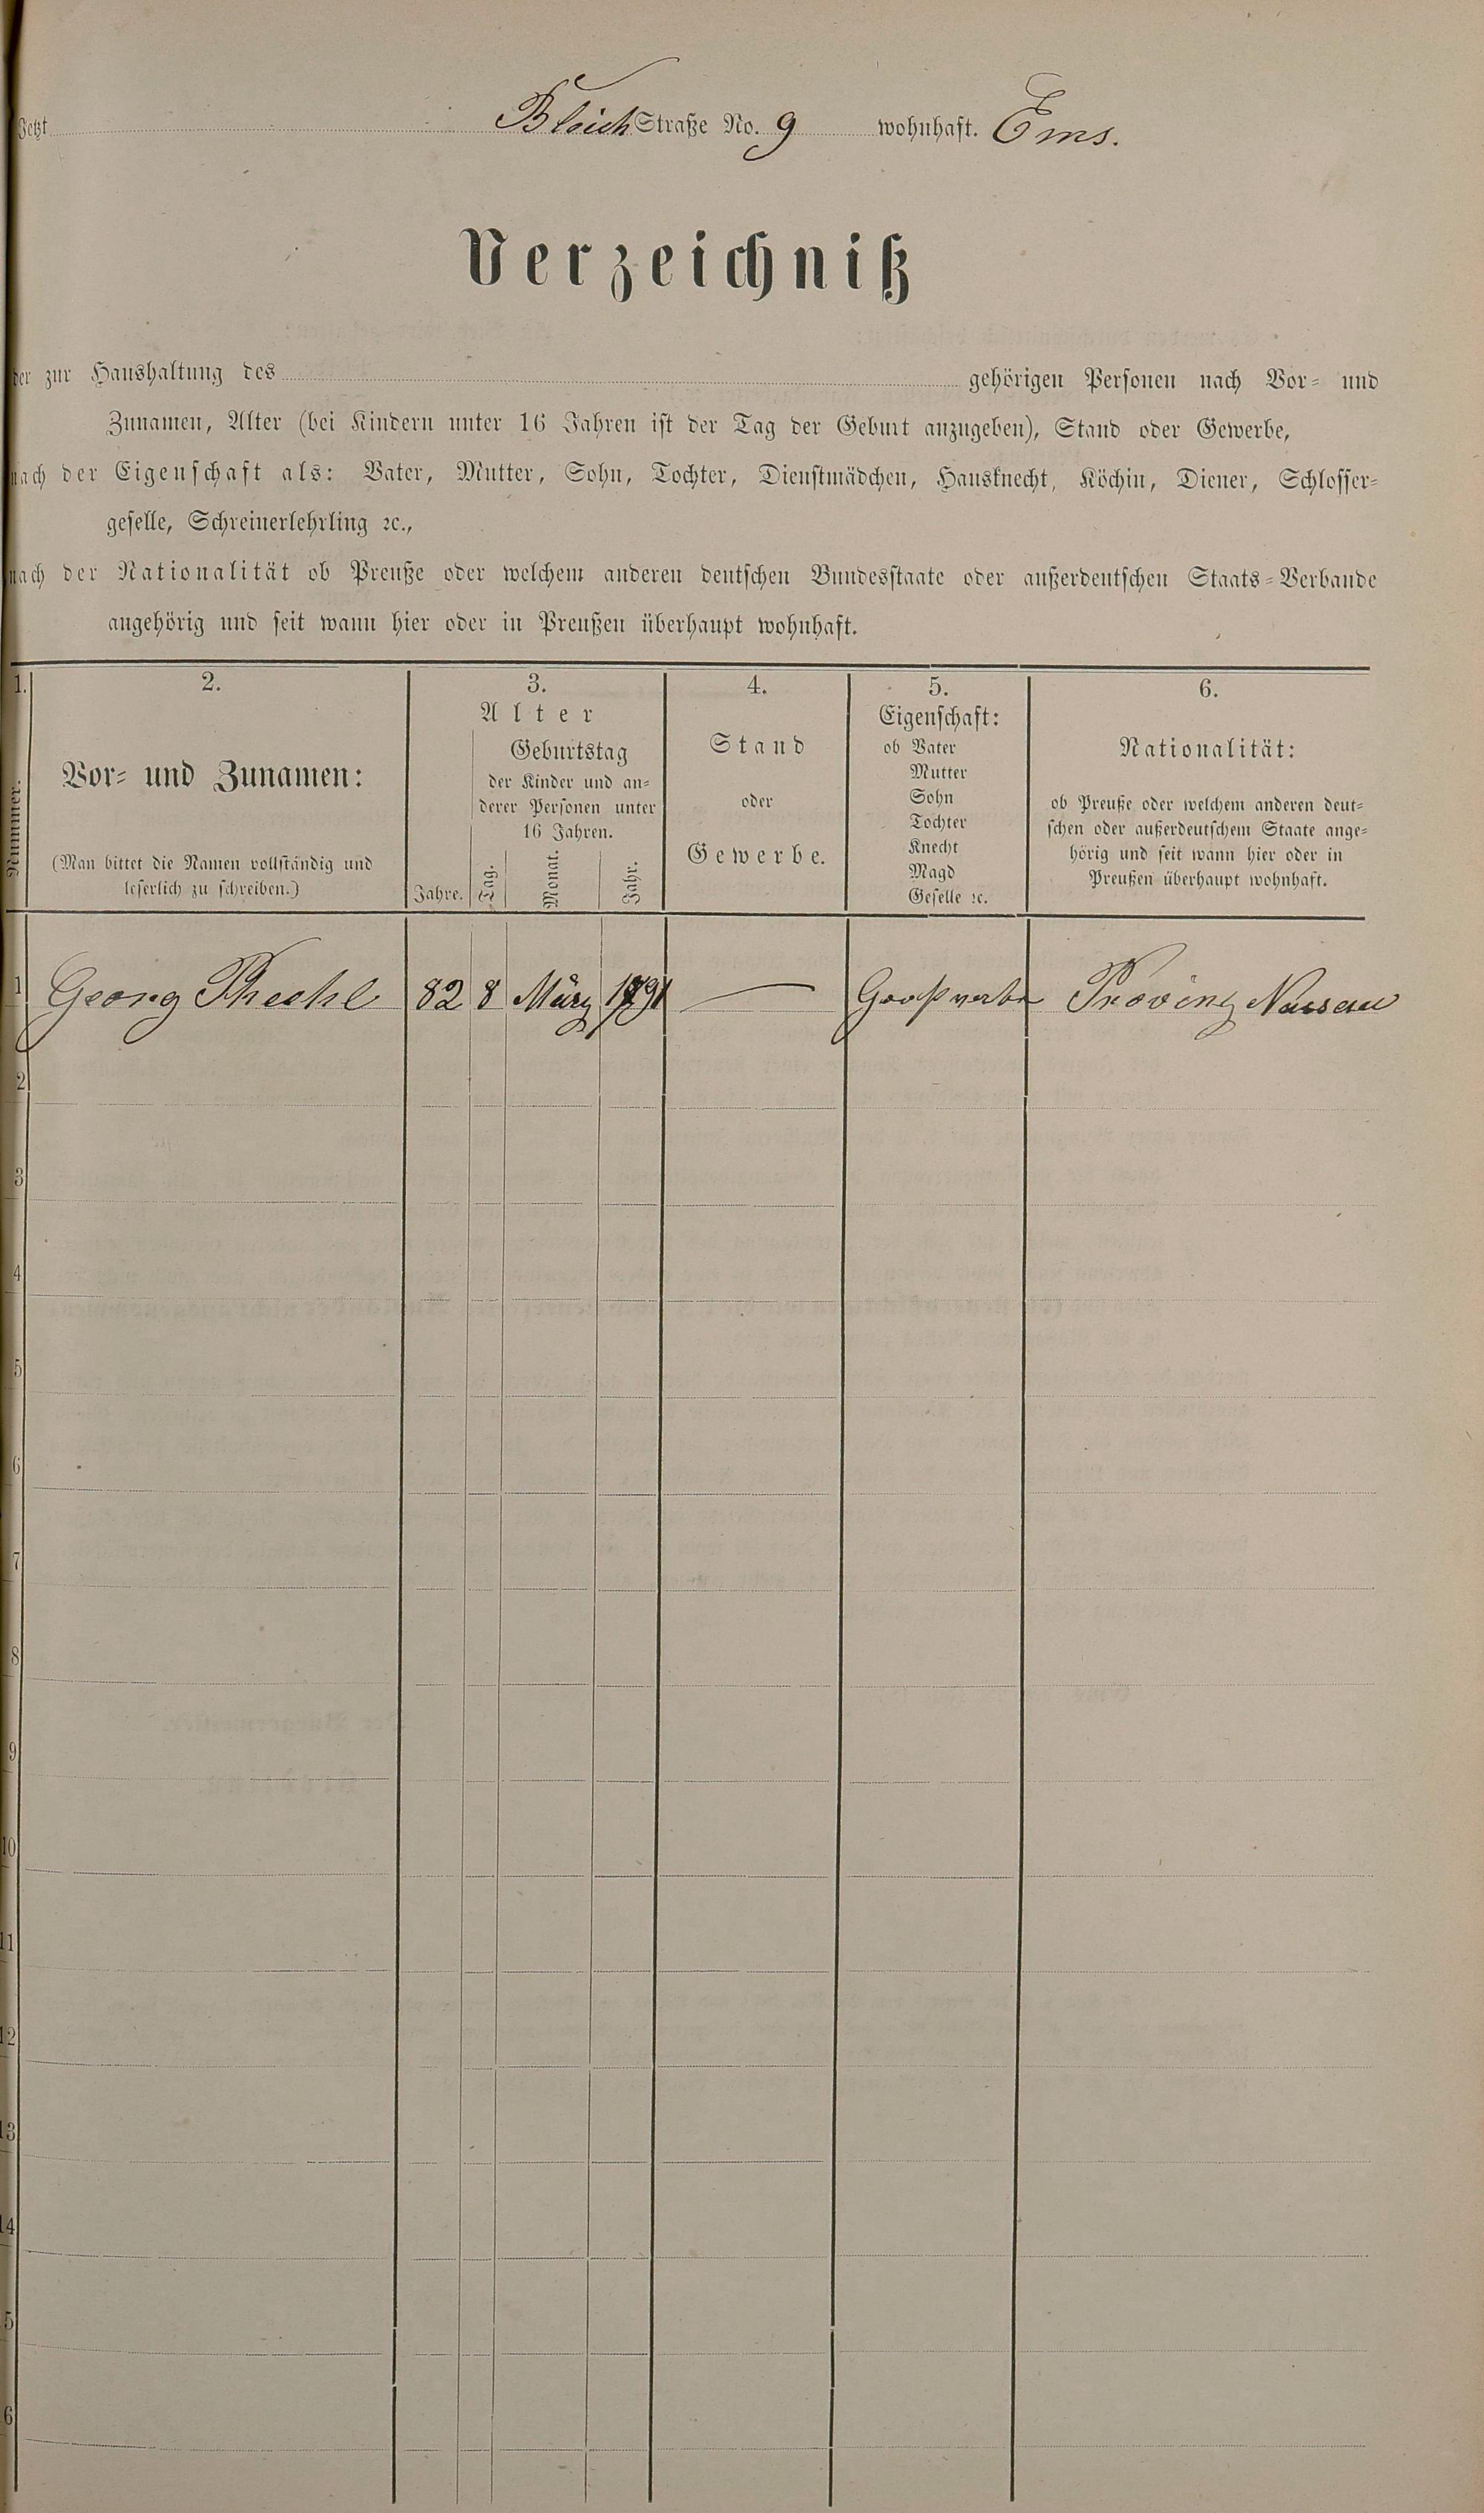 Jetzt Bleich Straße No. 9 wohnhaft. Ems.
Verzeichniß
der zur Haushaltung des gehörigen Personen nach Vor- und
Zunamen, Alter (bei Kindern unter 16 Jahren ist der Tag der Geburt anzugeben), Stand oder Gewerbe,
nach der Eigenschaft als: Vater, Mutter, Sohn, Tochter, Dienstmädchen, Hausknecht, Köchin, Diener, Schlosser-
geselle, Schreinerlehrling ꝛc.,
nach der Nationalität ob Preuße oder welchem anderen deutschen Bundesstaate oder außerdeutschen Staats-Verbande
angehörig und seit wann hier oder in Preußen überhaupt wohnhaft.
1.
Nummer.
2.
Vor- und Zunamen:
(Man bittet die Namen vollständig und
leserlich zu schreiben.)
3.
Alter
Jahre.
Geburtstag
der Kinder und an-
derer Personen unter
16 Jahren.
Tag. Monat. Jahr.
4.
Stand
oder
Gewerbe.
5.
Eigenschaft:
ob Vater
Mutter
Sohn
Tochter
Knecht
Magd
Geselle ꝛc.
6.
Nationalität:
ob Preuße oder welchem anderen deut-
schen oder außerdeutschem Staate ange-
hörig und seit wann hier oder in
Preußen überhaupt wohnhaft.
1 Georg 82 8 März — Provinz Nassau
2
3
4
5
6
7
8
9
10
11
12
13
14
5
6